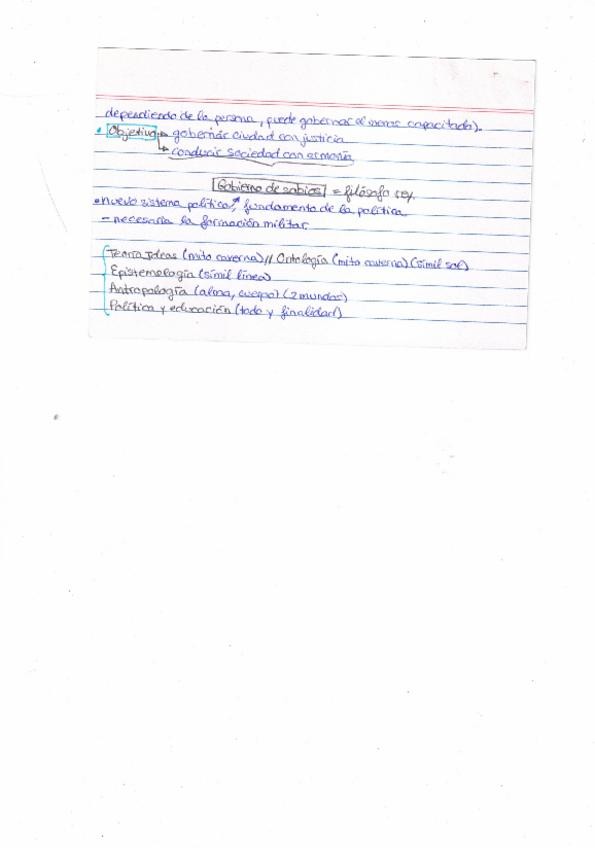 dependiendo de la persona, puede gobernar el menos capacitado).
• Objetivo → gobernar ciudad con justicia
↳ conducir sociedad con armonía
Gobierno de sabios = filósofo rey.
• nuevo sistema político, fundamento de la política
- necesaria la formación militar.
Teoría Ideas (mito caverna) // Ontología (mito caverna) (símil sol)
Epistemología (símil línea)
Antropología (alma, cuerpo) (2 mundos)
Política y educación (todo y finalidad)